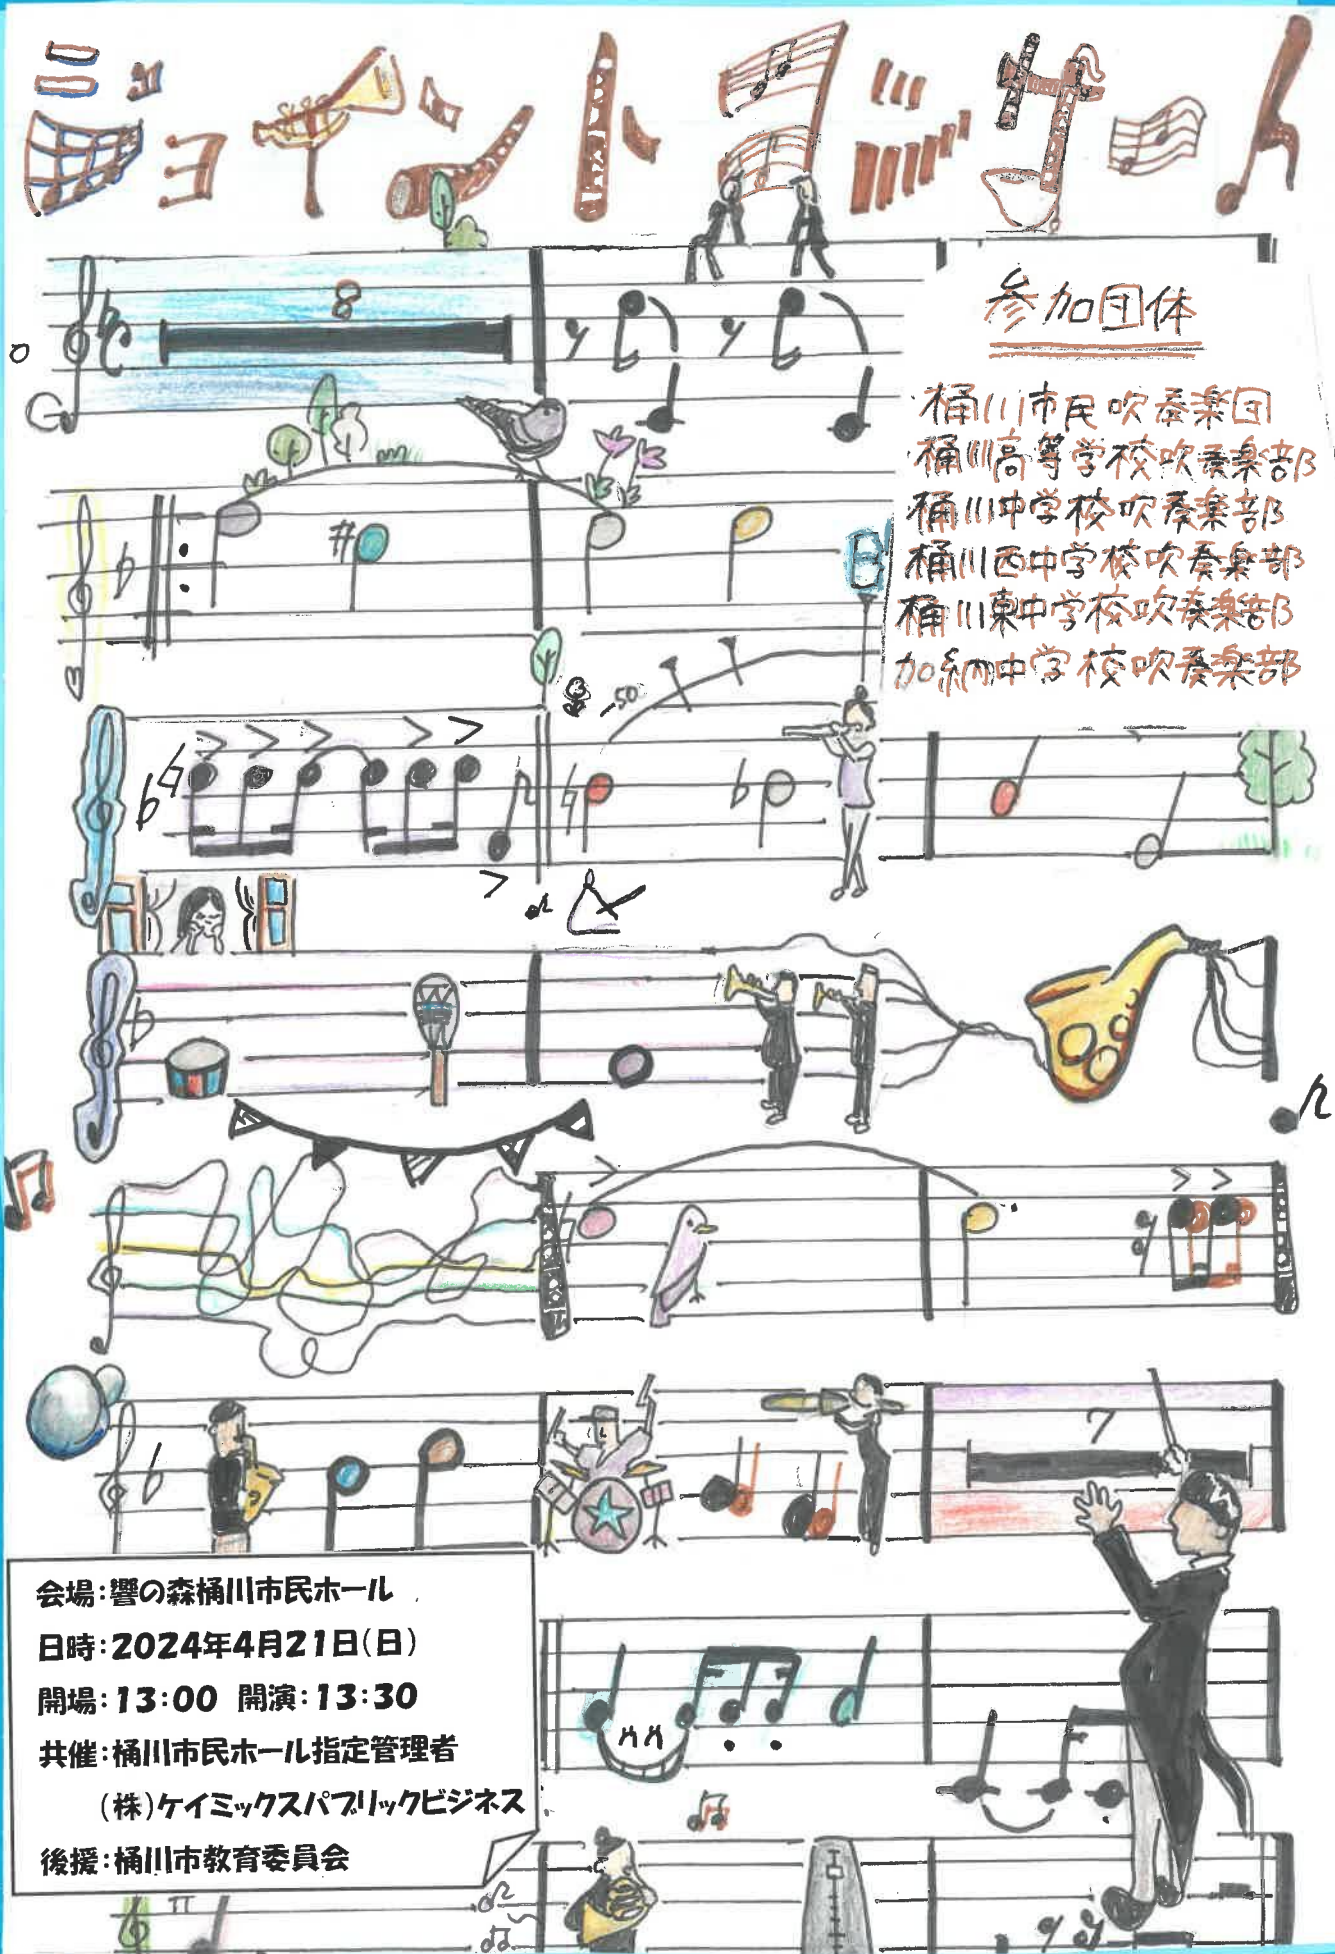 ジョイントコンサート
8
参加団体
桶川市民吹奏楽団
桶川高等学校吹奏楽部
桶川中学校吹奏楽部
桶川西中学校吹奏楽部
桶川東中学校吹奏楽部
加納中学校吹奏楽部
B
50
7
会場:響の森桶川市民ホール
日時:2024年4月21日(日)
開場:13:00 開演:13:30
共催:桶川市民ホール指定管理者
(株)ケイミックスパブリックビジネス
後援:桶川市教育委員会